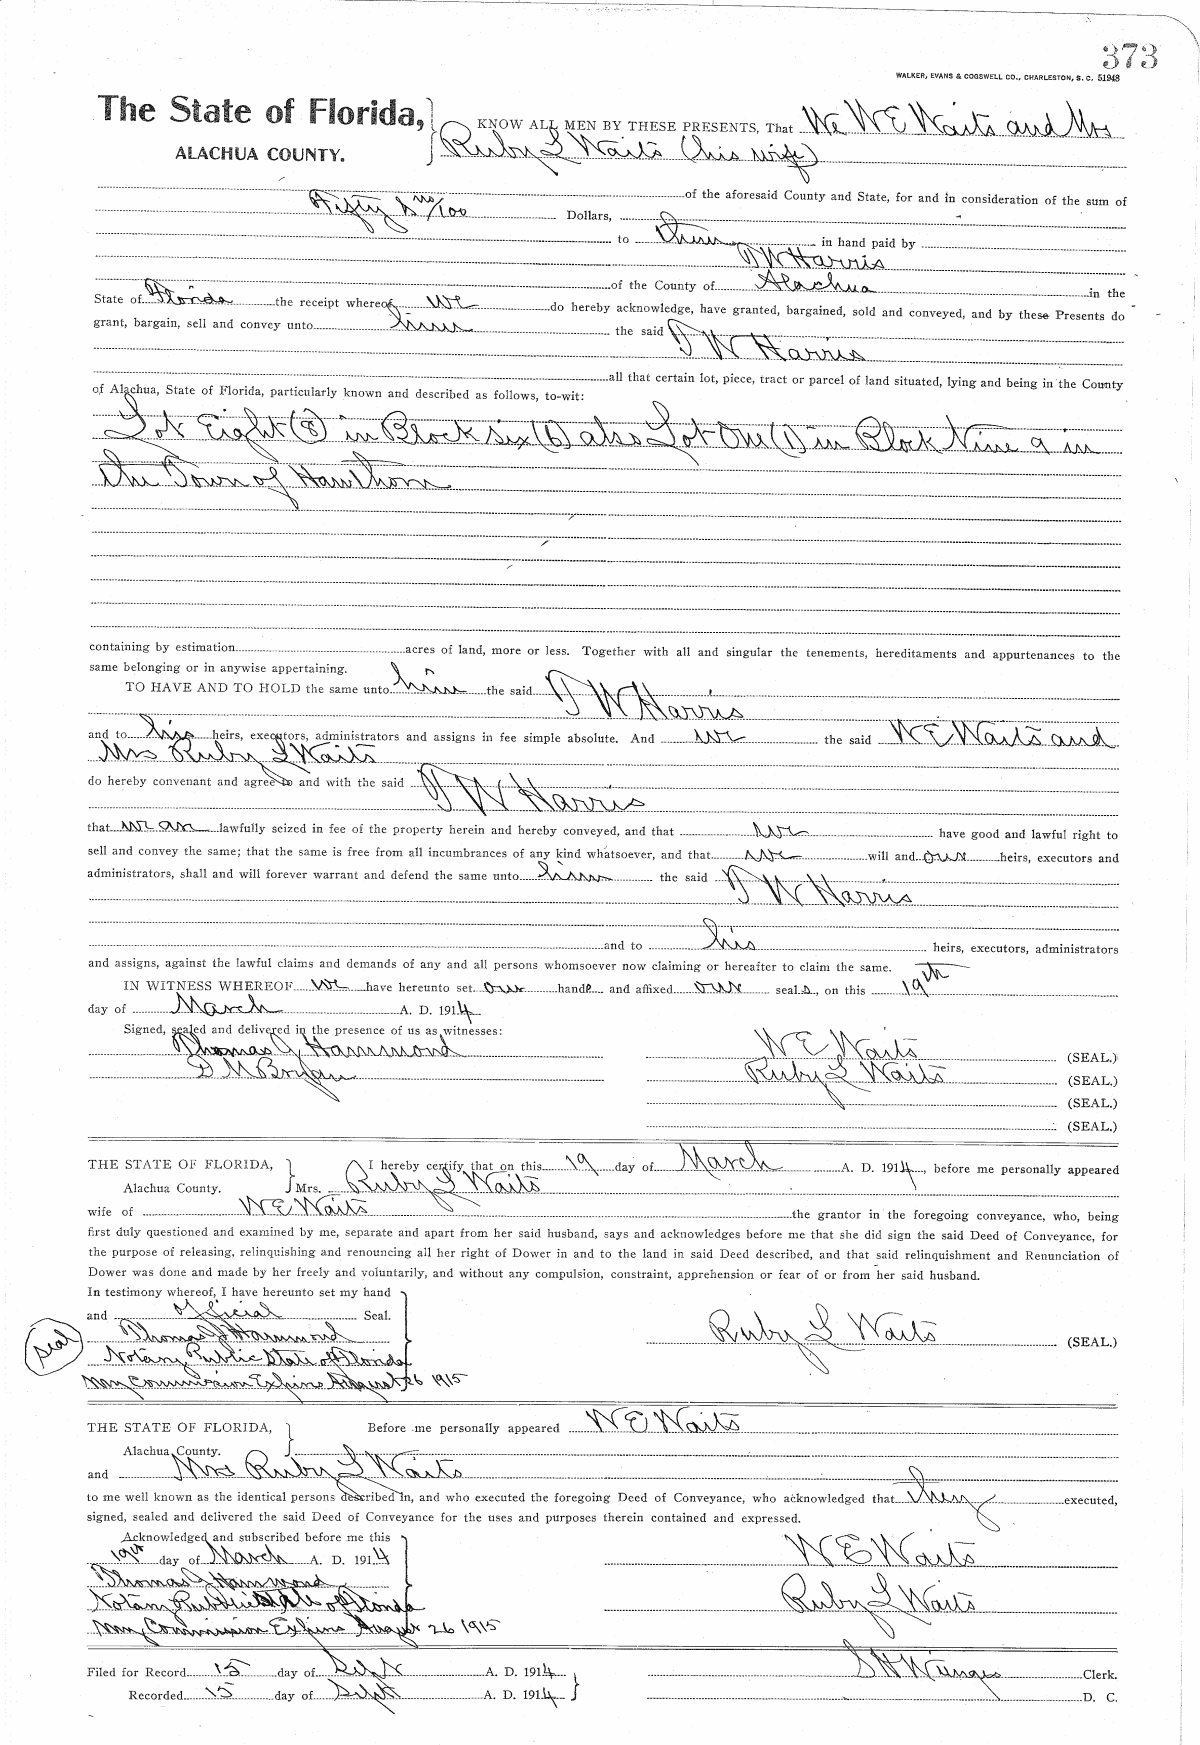 373
WALKER, EVANS & COGSWELL CO., CHARLESTON, S. C. 51948
The State of Florida,
ALACHUA COUNTY.
KNOW ALL MEN BY THESE PRESENTS, That We W E Waits and Mrs
Ruby L Waits (his wife)
of the aforesaid County and State, for and in consideration of the sum of
Fifty & no/100 Dollars,
to them in hand paid by
D W Harris
of the County of Alachua in the
State of Florida the receipt whereof we do hereby acknowledge, have granted, bargained, sold and conveyed, and by these Presents do
grant, bargain, sell and convey unto him the said D W Harris
all that certain lot, piece, tract or parcel of land situated, lying and being in the County
of Alachua, State of Florida, particularly known and described as follows, to-wit:
Lot Eight (8) in Block six (6) also Lot One (1) in Block Nine 9 in
the Town of Hawthorn
containing by estimation acres of land, more or less. Together with all and singular the tenements, hereditaments and appurtenances to the
same belonging or in anywise appertaining.
TO HAVE AND TO HOLD the same unto him the said D W Harris
and to his heirs, executors, administrators and assigns in fee simple absolute. And we the said W E Waits and
Mrs Ruby L Waits
do hereby convenant and agree to and with the said D W Harris
that we are lawfully seized in fee of the property herein and hereby conveyed, and that we have good and lawful right to
sell and convey the same; that the same is free from all incumbrances of any kind whatsoever, and that we will and our heirs, executors and
administrators, shall and will forever warrant and defend the same unto him the said D W Harris
and to his heirs, executors, administrators
and assigns, against the lawful claims and demands of any and all persons whomsoever now claiming or hereafter to claim the same.
IN WITNESS WHEREOF we have hereunto set our hands and affixed our seal s, on this 19th
day of March A. D. 1914
Signed, sealed and delivered in the presence of us as witnesses:
Thomas J Hammond W E Waits (SEAL.)
D M Bryan Ruby L Waits (SEAL.)
(SEAL.)
(SEAL.)
THE STATE OF FLORIDA, I hereby certify that on this 19 day of March A. D. 1914, before me personally appeared
Alachua County. Mrs. Ruby L Waits
wife of W E Waits the grantor in the foregoing conveyance, who, being
first duly questioned and examined by me, separate and apart from her said husband, says and acknowledges before me that she did sign the said Deed of Conveyance, for
the purpose of releasing, relinquishing and renouncing all her right of Dower in and to the land in said Deed described, and that said relinquishment and Renunciation of
Dower was done and made by her freely and voluntarily, and without any compulsion, constraint, apprehension or fear of or from her said husband.
In testimony whereof, I have hereunto set my hand
and official Seal.
seal
Thomas J Hammond Ruby L Waits (SEAL.)
Notary Public State of Florida
My Commission Expires August 26 1915
THE STATE OF FLORIDA, Before me personally appeared W E Waits
Alachua County.
and Mrs Ruby L Waits
to me well known as the identical persons described in, and who executed the foregoing Deed of Conveyance, who acknowledged that they executed,
signed, sealed and delivered the said Deed of Conveyance for the uses and purposes therein contained and expressed.
Acknowledged and subscribed before me this
19th day of March A. D. 1914 W E Waits
Thomas J Hammond
Notary Public State of Florida Ruby L Waits
My Commission Expires August 26 1915
Filed for Record 15 day of Sept A. D. 1914 S H Wienges Clerk.
Recorded 15 day of Sept A. D. 1914 D. C.